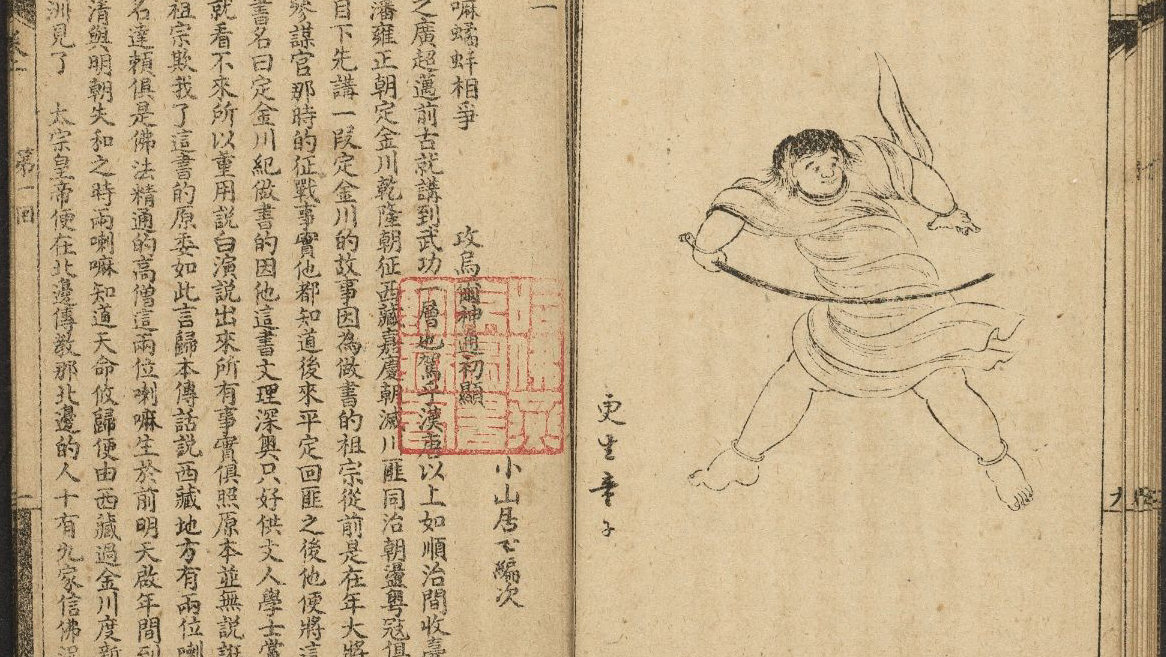 更生童子
嘛蟠蚌相爭 攻烏爾神通初顯
小山居士編次
之廣超邁前古就講到武功一層也駕乎漢唐以上如順治間收
藩雍正朝定金川乾隆朝征西藏嘉慶朝滅川匪同治朝盪粵寇俱
目下先講一段定金川的故事因為做書的祖宗從前是在年大將
參謀官那時的征戰事實他都知道後來平定回匪之後他便將這
書名曰定金川紀做書的因他這書文理深奧只好供文人學士
就看不來所以重用説白演説出來所有事實俱照原本並無説
祖宗欺我了這書的原委如此言歸本傳話説西藏地方有兩位喇
名達賴俱是佛法精通的高僧這兩位喇嘛生於前明天啟年間到
清與明朝失和之時兩喇嘛知道天命攸歸便由西藏過金川度新
洲見了 太宗皇帝便在北邊傳教那北邊的人十有九家信佛
第一回